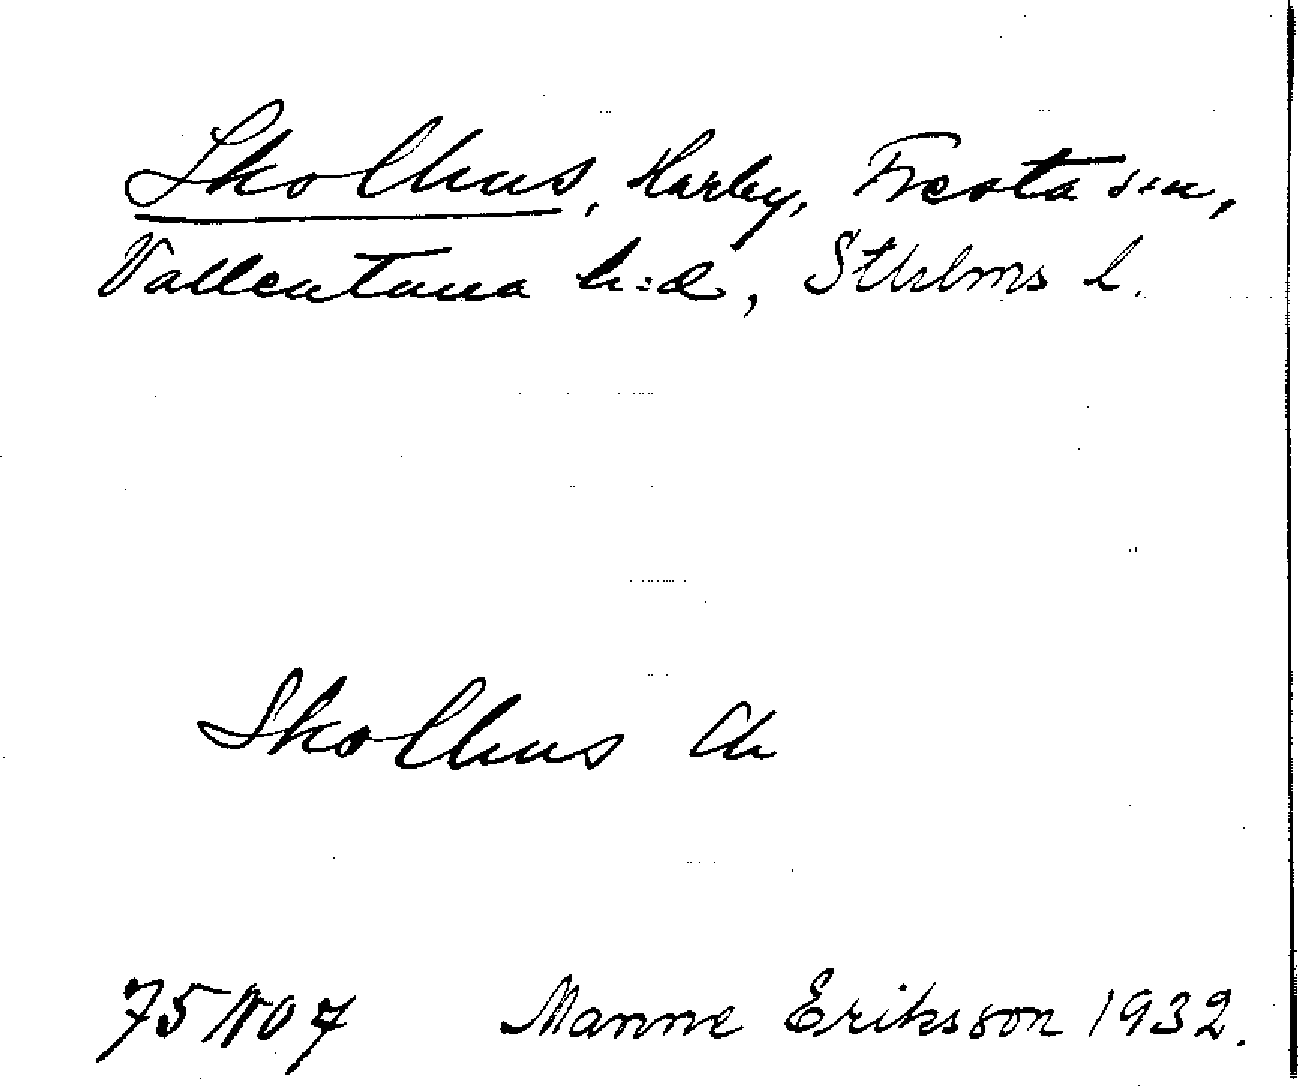 Skolhus, Harby, Fresta sn,
Vallentuna h:d, Sthlms l.
Skolhus Ch
75 NO 7 Manne Eriksson 1932.